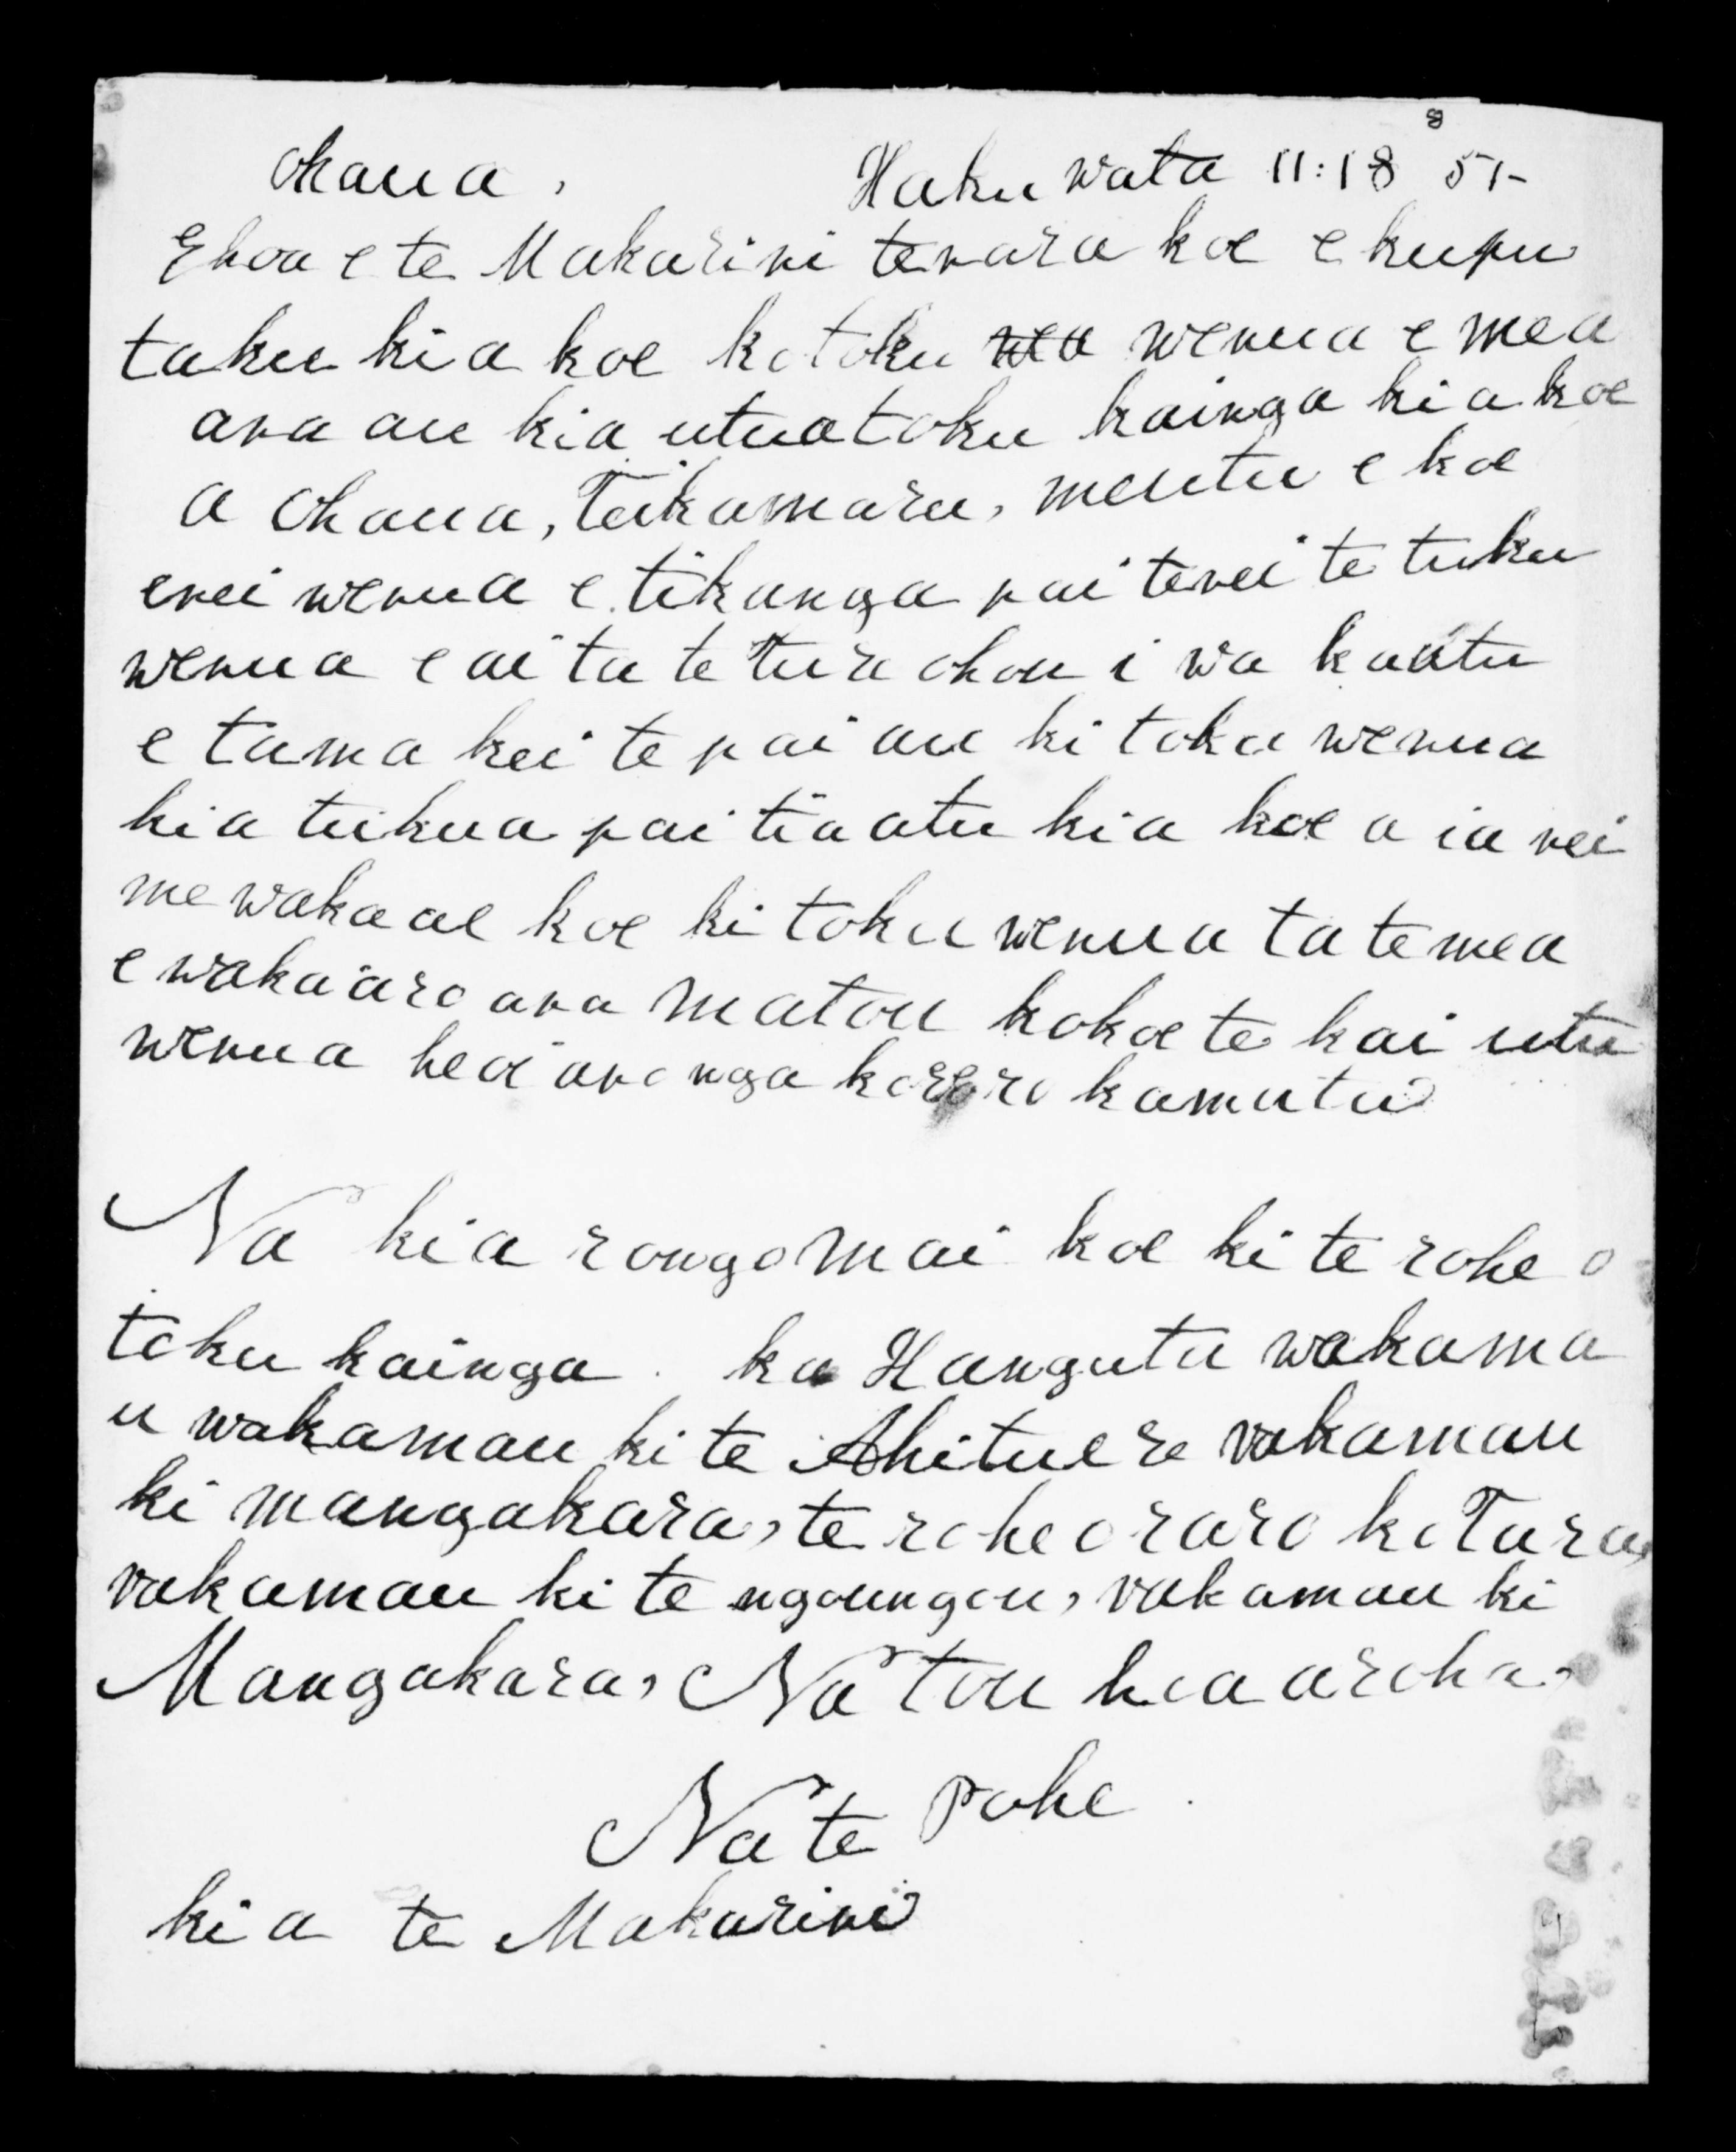 Okaua, Hakuwata 11:18 8 51-
E hoa e te Makarini tenara koe e kupu
taku kia koe ko toku wenua e mea
ana au kia utua toku kainga kia koe
a Okaua, Tukamaru, me utu e koe
enei wenua e tikanga pai tenei te tuku
wenua e ai ta te Ture okou i wa kautu
e tama kei te pai au ki toku wenua
kia tukua pai tia atu kia koe a ia nei
me wakaae koe ki toku wenua ta te mea
e wakaaro ana matou ko koe te kai utu
wenua heoi ano nga korero ka mutu
Na kia rongo mai koe ki te rohe o
toku kainga. ko Hangutu wakama
u wakamau ki te Ahituere wakamau
ki mangakara, te rohe o raro ko Tara
wakamau ki te ngoungou, wakamau ki
Mangakara, Na tou hoa aroha,
Na te Pohe.
kia te Makarini